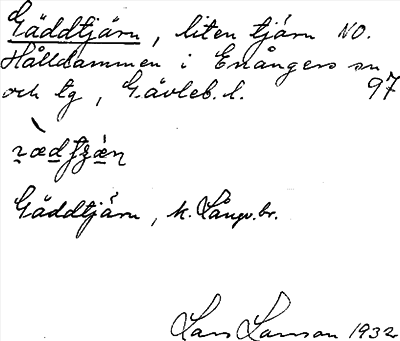 Gäddtjärn, liten tjärn NO.
Hålldammen i Enångers sn
och tg, Gävleb. l. 97
Gäddtjärn, k. Långv. br.
Lars Larsson 1932